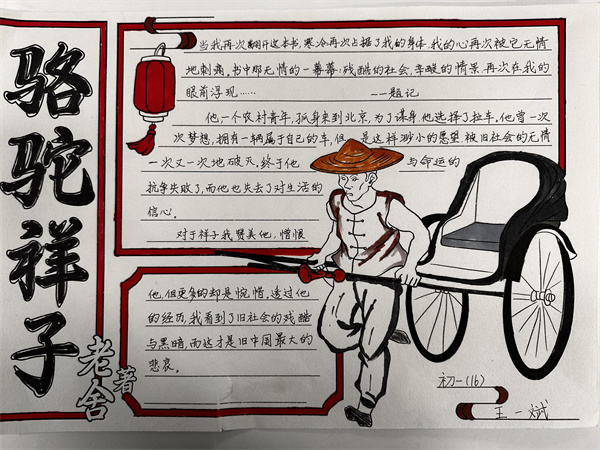 骆驼祥子
老舍著
当我再次翻开这本书,寒冷再次占据了我的身体,我的心再次被它无情
地刺痛,书中那无情的一幕幕:残酷的社会,辛酸的情景再次在我的
眼前浮现……
——题记
他,一个农村青年,孤身来到北京,为了谋身他选择了拉车,他曾一次
次梦想,拥有一辆属于自己的车,但 是这样渺小的愿望被旧社会的无情
一次又一次地破灭,终于他 与命运的
抗争失败了,而他也失去了对生活的
信心。
对于祥子我赞美他,憎恨
他,但更多的却是惋惜,透过他
的经历,我看到了旧社会的残酷
与黑暗,而这才是旧中国最大的
悲哀。
初一(16)
王一斌